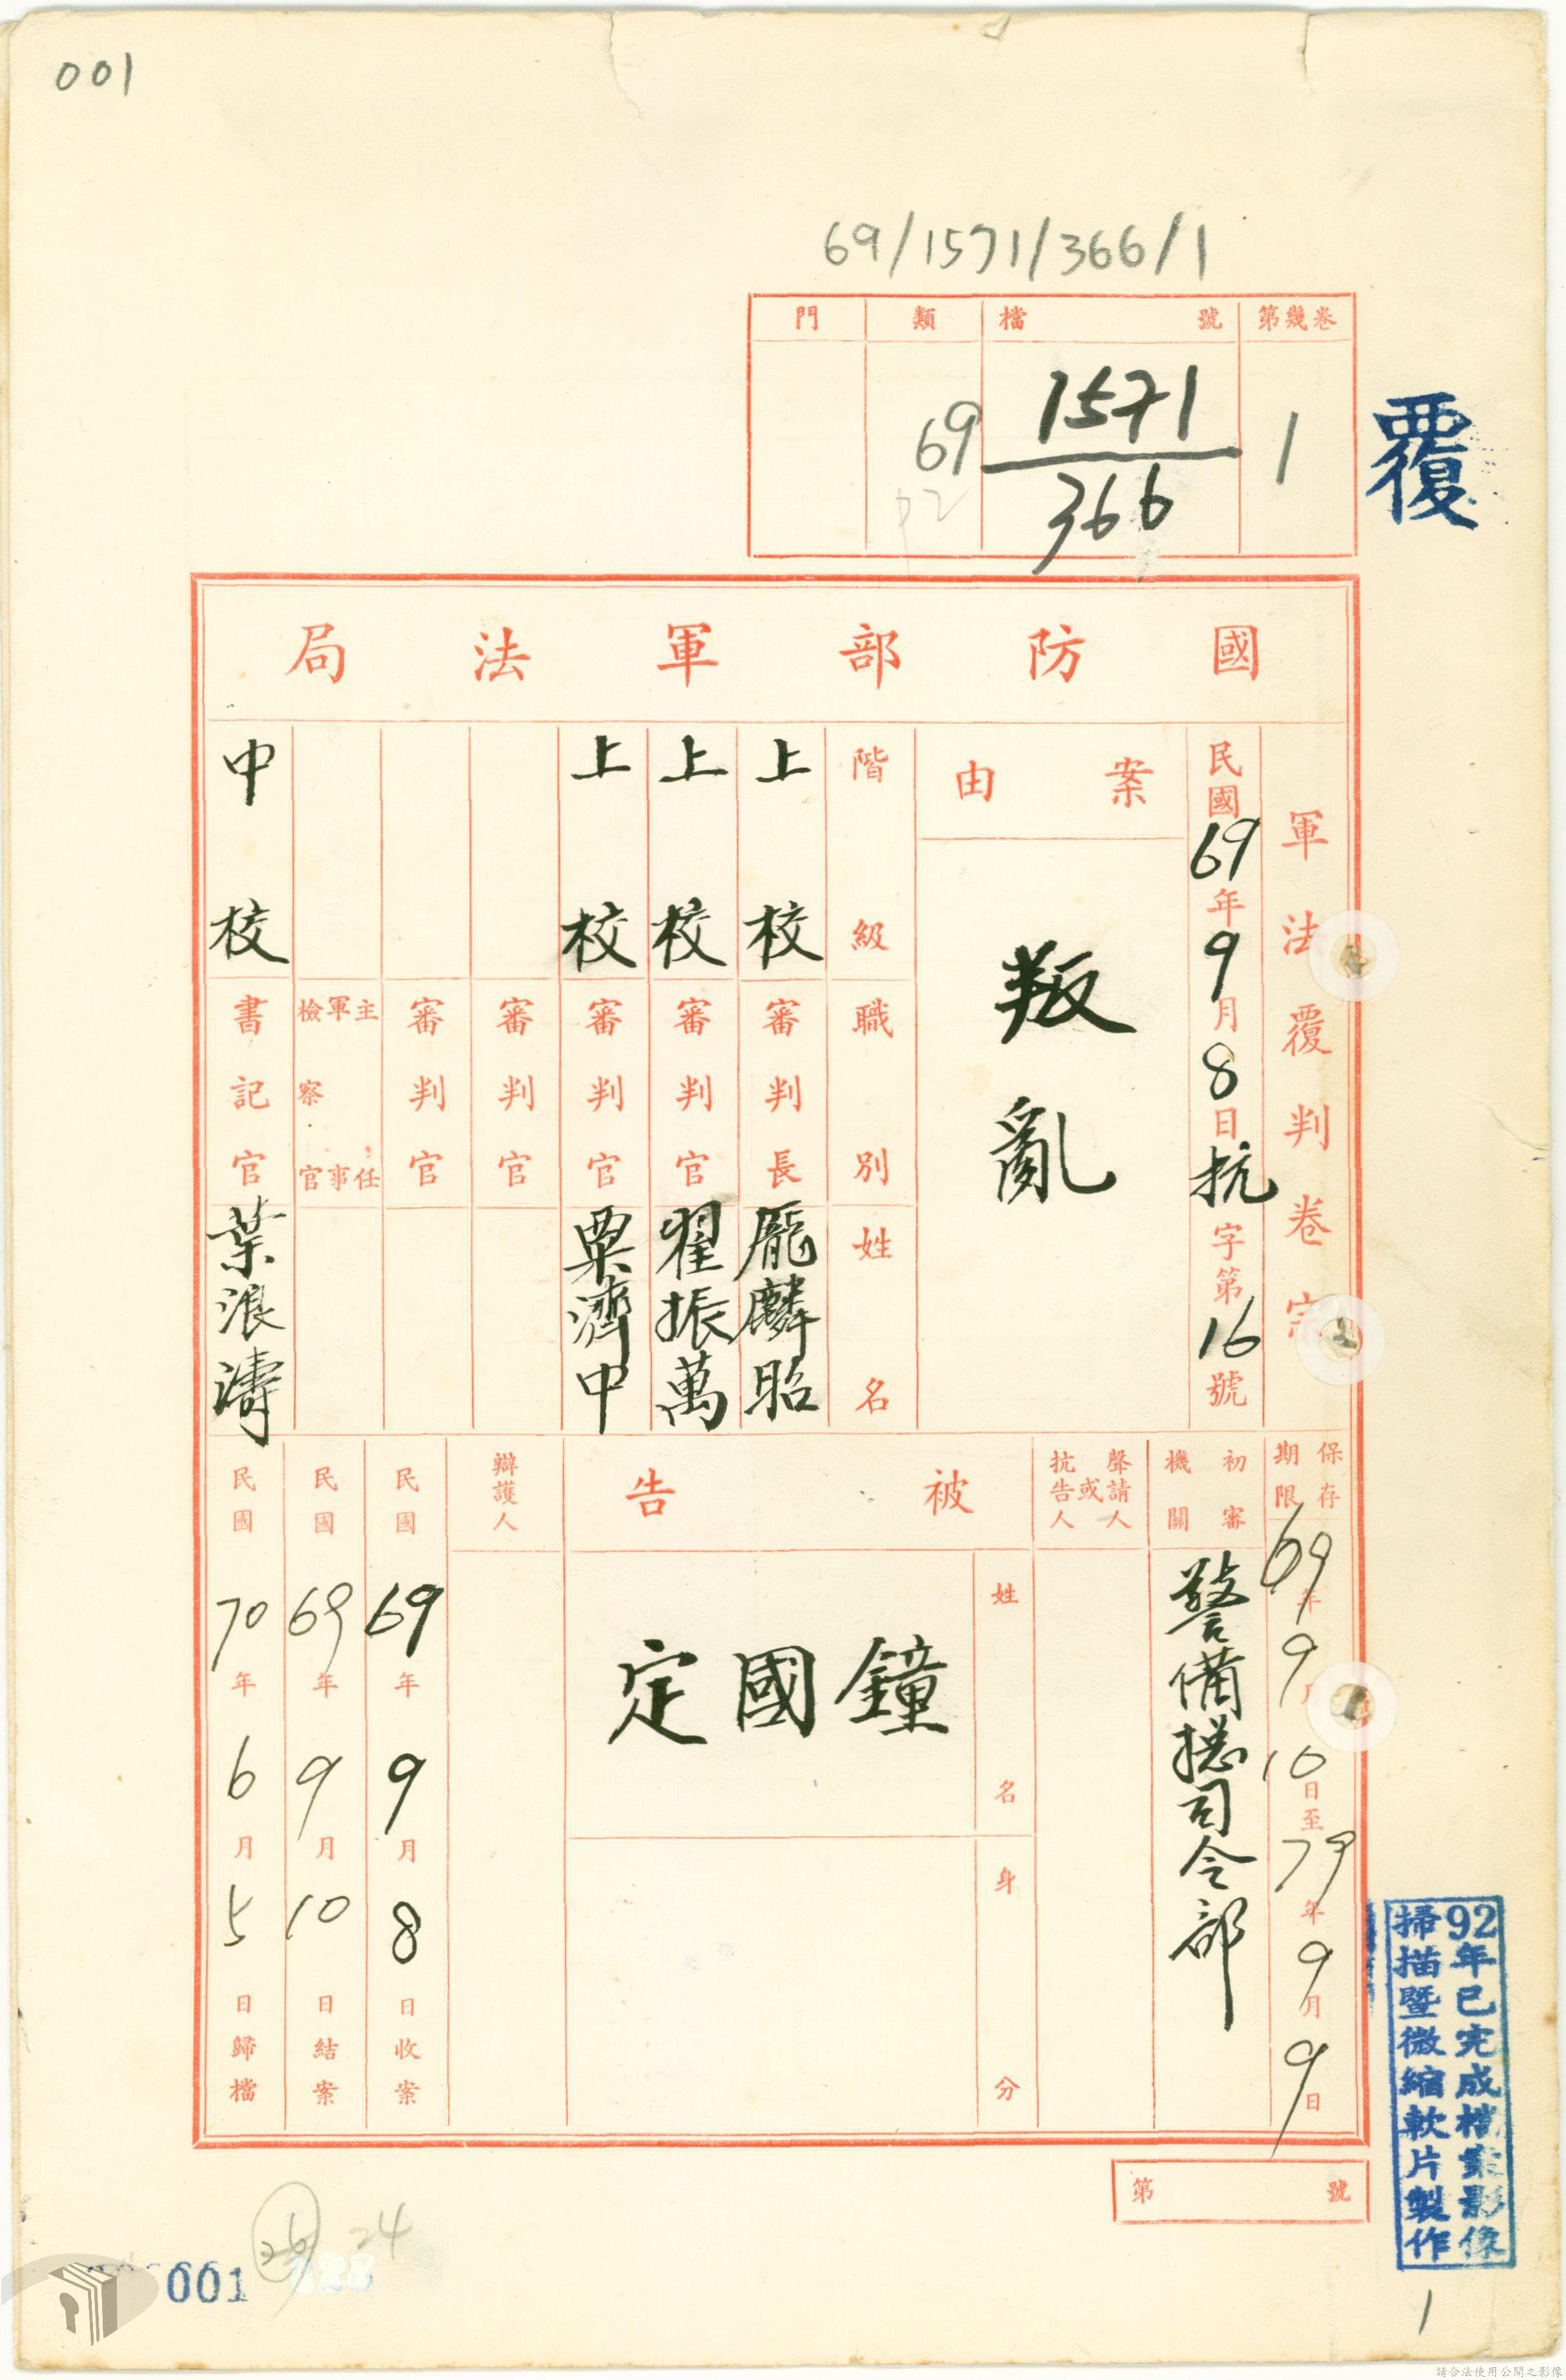 001
69/1571/366/1
第幾卷 1
檔號 1571/366
類 69
門
覆
國防部軍法局
軍法覆判卷宗
民國69年9月8日抗字第16號
案由
叛亂
階級 職別 姓名
上校 審判長 龐麟昭
上校 審判官 翟振萬
上校 審判官 粟濟中
審判官
審判官
主任軍事檢察官
中校 書記官 葉浪濤
保存期限 69年9月10日至79年9月9日
初審機關 警備總司令部
聲請人或抗告人
被告
姓名 鐘國定
身分
辯護人
民國69年9月8日收案
民國69年9月10日結案
民國70年6月5日歸檔
第 號
92年已完成檔案影像
掃描暨微縮軟片製作
1
24
001
請合法使用公開之影像